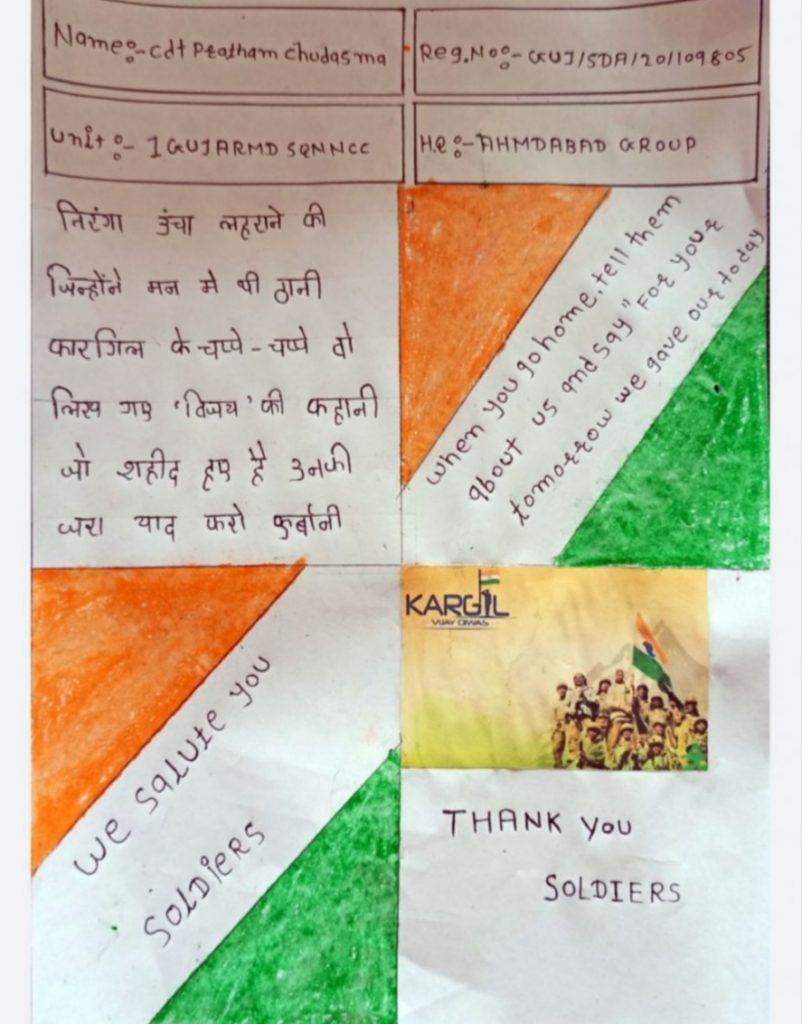 Name:- Cdt Pratham Chudasma
Reg.No:- GUJ/SDA/20/109805
Unit:- 1 GUJ ARMD SQN NCC
H.Q:- AHMDABAD GROUP
तिरंगा उंचा लहराने की
जिन्होंने मन मे थी ठानी
कारगिल के चप्पे-चप्पे वो
लिख गए 'विजय' की कहानी
जो शहीद हुए है उनकी
जरा याद करो कुर्बानी
When you go home, tell them
about us and say "For your
tomorrow we gave our today
We Salute you
SOLDIERS
KARGIL
VIJAY DIWAS
THANK YOU
SOLDIERS